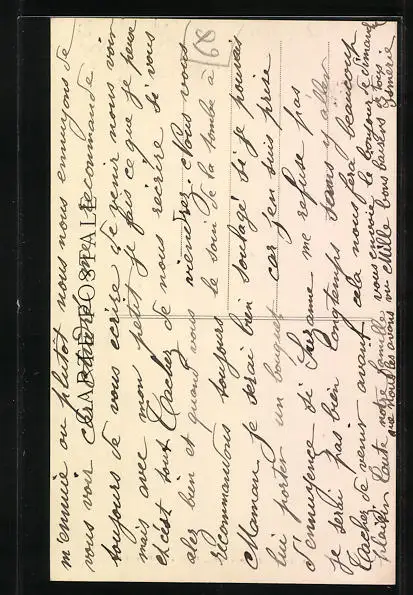 m'ennuie ou plutôt nous nous ennuyons de
vous voir car Maman me recommande
CARTE POSTALE
toujours de vous ecrire de venir nous voir
mais avec mon petit je fais ce que je peux
et c'est tout Tacher de nous recrire si vous
68
alez bien et quand vous viendrez. Nous vous
recommandons toujours le soin de la tombe à
Maman je serai bien soulagé si je pouvais
lui porter un bouquet car j'en suis prise
d'ennuyence si Suzanne me refuse pas
je serai pas bien longtemps sans y aller
Tacher de venir avant cela nous fera beaucoup
plaisir Toute notre famille vous envoie le bonjour
que nous les avons vu Mille bons baisers de tous